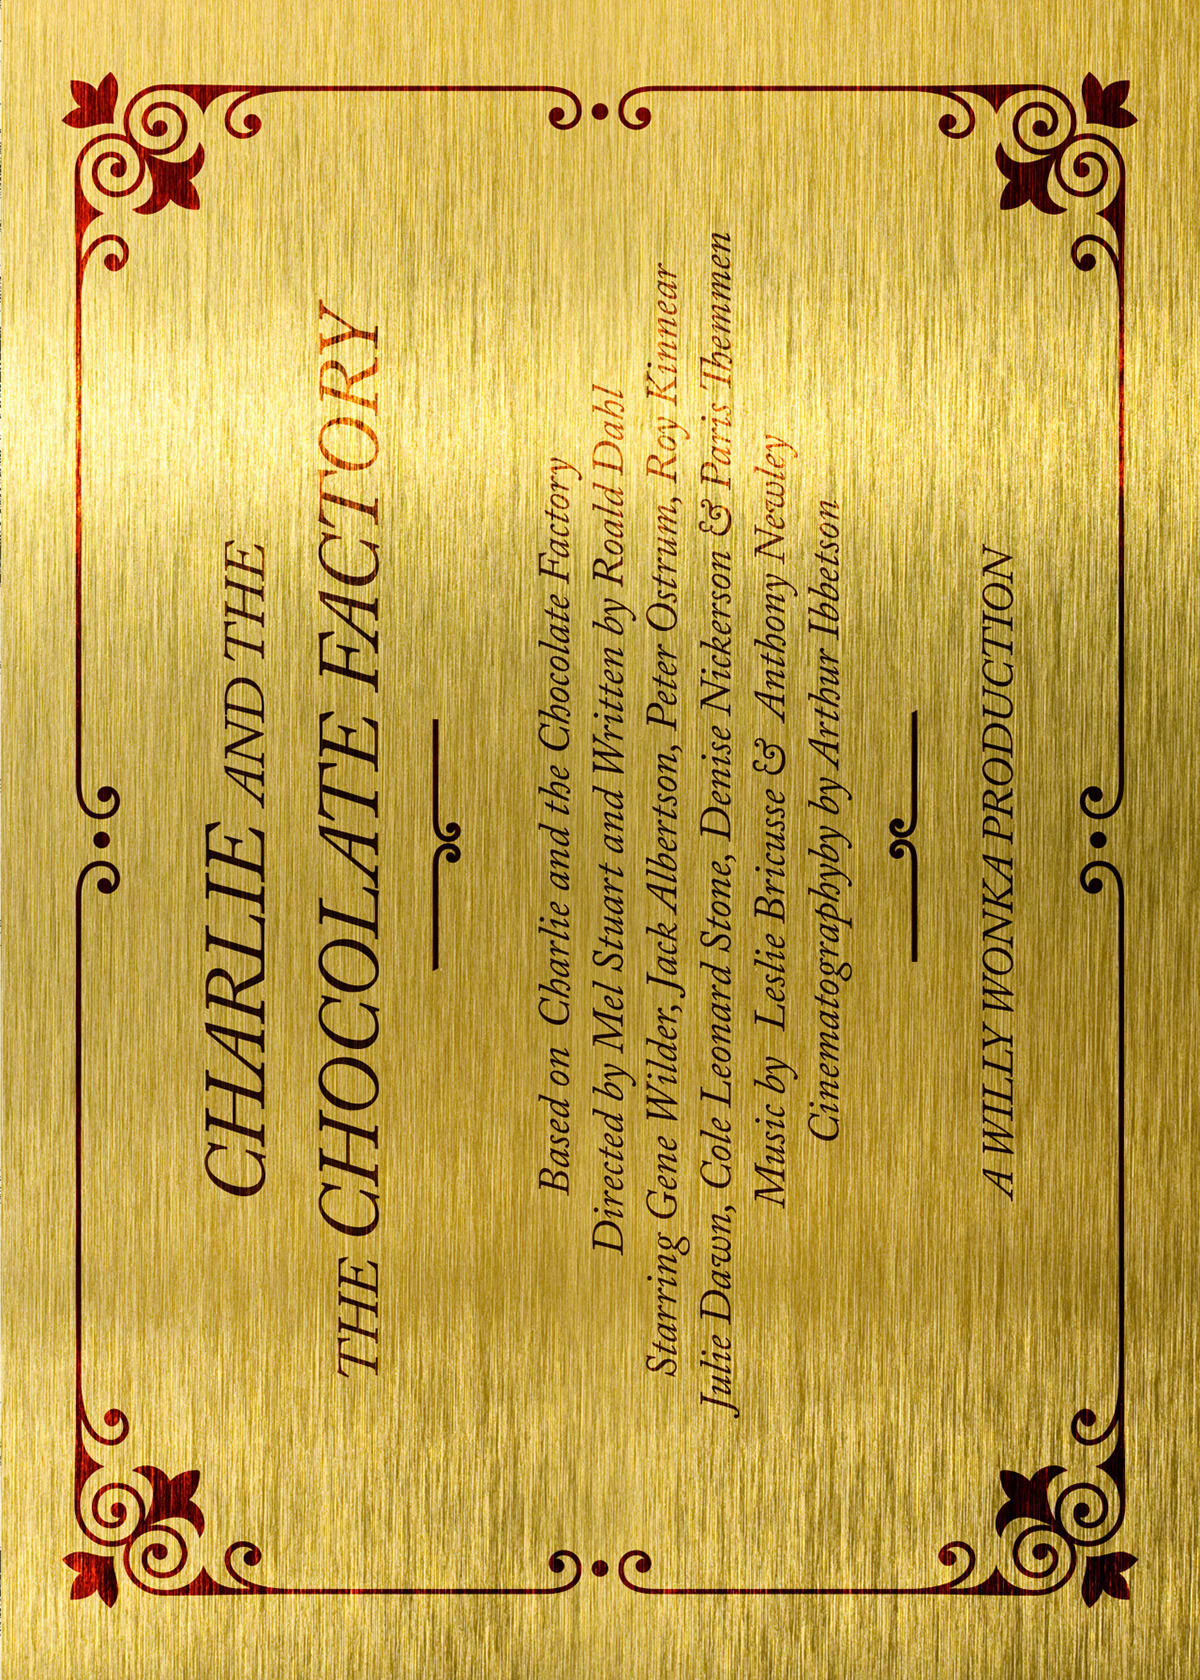 CHARLIE AND THE
THE CHOCOLATE FACTORY
Based on Charlie and the Chocolate Factory
Directed by Mel Stuart and Written by Roald Dahl
Starring Gene Wilder, Jack Albertson, Peter Ostrum, Roy Kinnear
Julie Dawn, Cole Leonard Stone, Denise Nickerson & Paris Themmen
Music by Leslie Bricusse & Anthony Newley
Cinematographyby by Arthur Ibbetson
A WILLY WONKA PRODUCTION